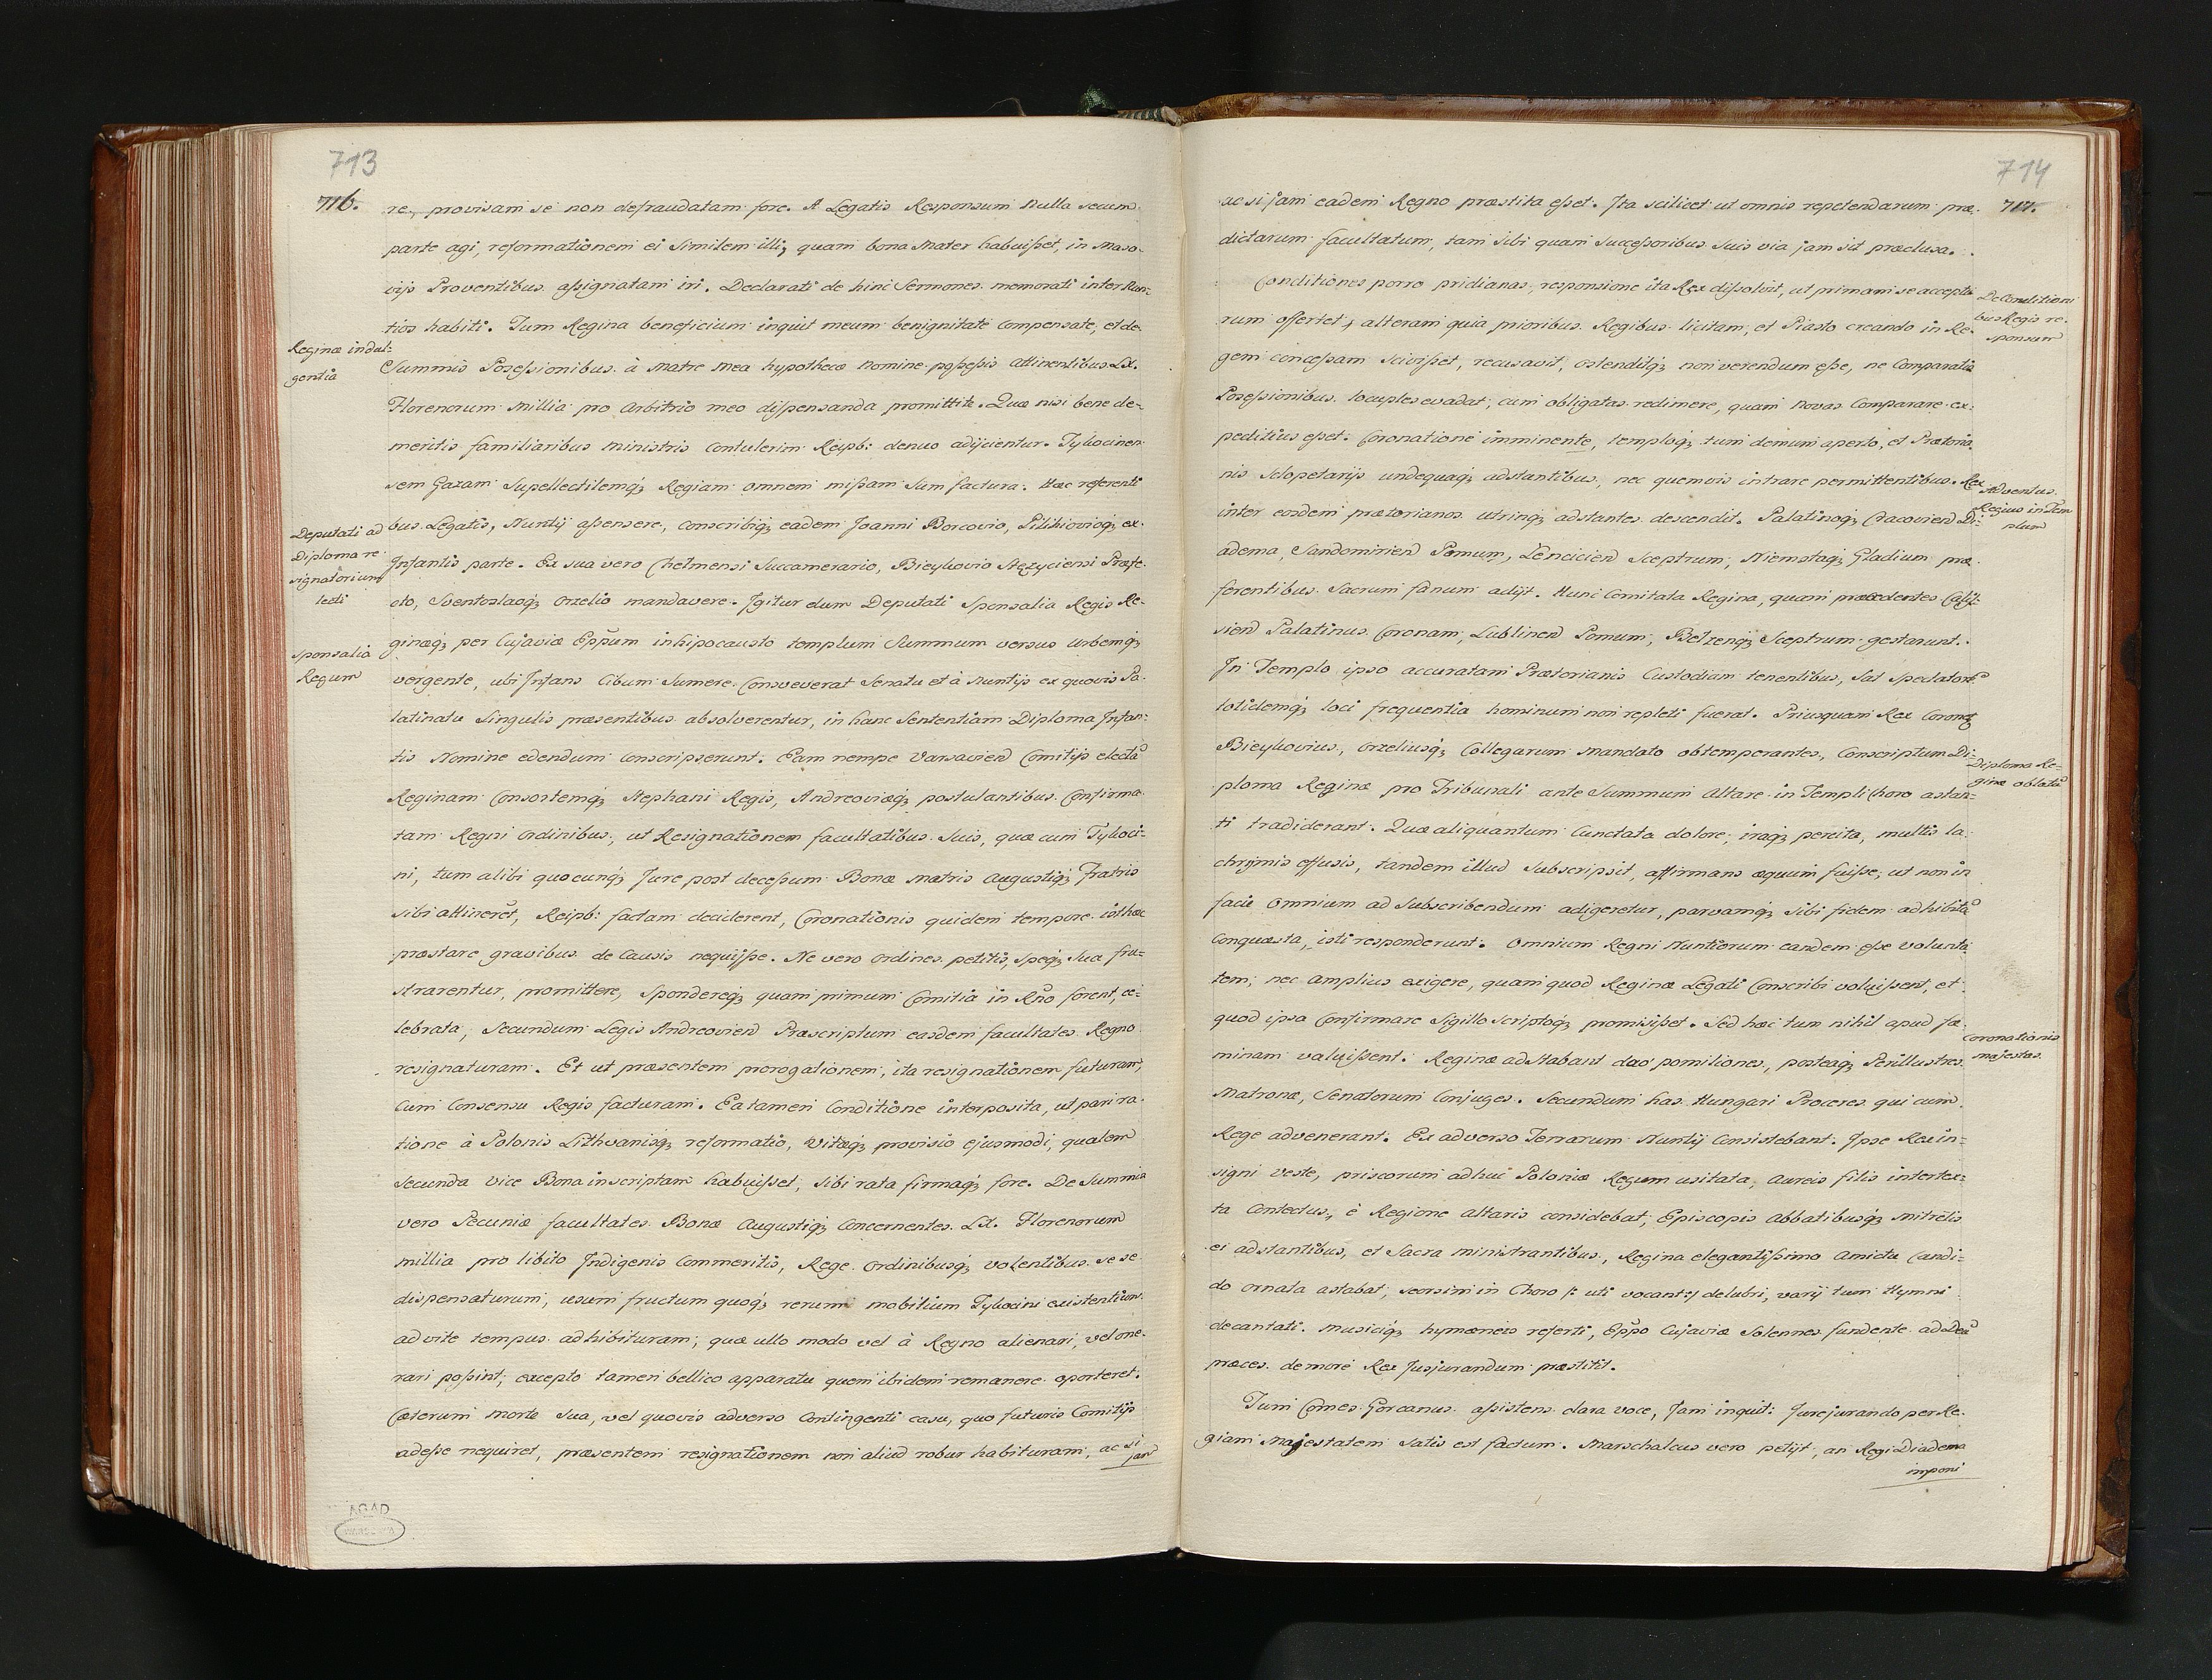 713
716.
re, provisam se non defraudatam fore. A Legatis Responsum nulla secum
parte agi, reformationem ei similem illi, quam bona Mater habuisset, in Maso-
vijs Proventibus assignatam iri. Declarati de hinc Sermones memorati inter Nun-
tios habiti. Tum Regina beneficium inquit meum benignitate compensate, et de
Reginæ indul-
gentia
Summis Posessionibus à Matre mea hypothecæ nomine possessis attinentibus LX.
Florenorum Millia pro arbitrio meo dispensanda promittite. Quæ nisi bene de-
meritis familiaribus ministris contulerim Reipb: denuo adijcientur. Tykocinen
sem Gazam Supellectilemq; Regiam omnem missam sum factura. Hæc referenti
Deputati ad
Diploma re
signatorium
lecti
bus Legatis, Nuntij assensere, conscribiq; eadem Joanni Borcovio, Pilikiovioq; ex
Infantis parte. Ex sua vero Chelmensi Succamerario, Bieykovio Stęzyciensi Præfe-
cto, Sventoslaoq; Orzelio mandavere. Igitur dum Deputati Sponsalia Regis Re-
Sponsalia
Regum
ginæq; per Cujaviæ Eppum in hipocausto templum Summum versus Urbemq;
vergente, ubi Infans cibum sumere consveverat Senatu et à Nuntijs ex quovis Pa-
latinatu singulis præsentibus absolverentur, in hanc Sententiam Diploma Infan-
tis Nomine edendum conscripserunt. Eam nempe Varsavien Comitijs electã
Reginam Consortemq; Stephani Regis, Andreoviæq; postulantibus confirma-
tam Regni ordinibus, ut Resignationem facultatibus suis, quæ cum Tykoci-
ni, tum alibi quocunq; Jure post decessum Bonæ matris Augustiq; Fratris
sibi attineret, Reipb: factam deciderent, Coronationis quidem tempore isthæc
præstare gravibus de causis nequijsse. Ne vero ordines petitis, speq; sua fru-
strarentur, promittere, spondereq; quam primum Comitia in Rno forent, ce-
lebrata, secundum Legis Andreovien Præscriptum easdem facultates Regno
resignaturam. Et ut præsentem prorogationem, ita resignationem futuram,
cum consensu Regis facturam. Ea tamen Conditione interposita, ut pari ra-
tione à Polonis Lithvanisq; reformatio, Vitæq; provisio ejusmodi, qualem
secunda vice Bona inscriptam habuisset, sibi rata firmaq; fore. De Summa
vero Pecuniæ facultates Bonæ Augustiq; concernentes LX. Florenorum
millia pro libito Indigenis Commeritis, Rege Ordinibusq; volentibus sese
dispensaturum, usum fructum quoq; rerum mobilium Tykocini existentium
ad vite tempus adhibituram; quæ ullo modo vel à Regno alienari, vel one-
rari possint; excepto tamen bellico apparatu quem ibidem remanere oporteret.
Cæterum morte sua, vel quovis adverso contingenti casu, quo futuris Comitijs
adesse nequiret, præsentem resignationem non aliud robur habituram, ac si
jam
AGAD
714
717.
ac si jam eadem Regno præstita esset. Ita scilicet ut omnis repetendarum præ-
dictarum facultatum, tam sibi quam successoribus suis via jam sit præclusa.
Conditiones porro pridianas, responsione ita Rex dissolvit, ut primam se accepta
De Conditioni
bus Regis re-
sponsum
rum offertet, alteram quia prioribus Regibus licitam, et Piasto creando in Re-
gem concessam scivisset, recusavit, ostenditq; non verendum esse, ne comparatis
Posessionibus locuples evadat, cum obligatas redimere, quam novas comparare ex-
peditius esset. Coronatione imminente, temploq; tum demum aperto, et Prætoria
nis sclopetarijs undequaq; adstantibus, nec quemvis intrare permittentibus. Rex
Adventus
Regius in Tem
plum
inter eosdem prætorianos utrinq; adstantes descendit. Palatinoq; Cracovien Di-
adema, Sandomirien Pomum, Lencicien Sceptrum, Niemstaq; Gladium præ-
ferentibus Sacrum fanum adijt. Hunc Comitata Regina, quam præcedentes Calis-
sien Palatinus Coronam, Lublinen Pomum, Belzenq; Sceptrum gestarunt.
In Templo ipso accuratam Prætorianis Custodiam tenentibus, sat spectatorũ
totidemq; loci frequentia hominum non repleti fuerat. Priusquam Rex Coroneq
Bieykovius, Orzeliusq; Collegarum mandato obtemperantes, Conscriptum Di-
Diploma Re-
ginæ oblatũ
ploma Reginæ pro Tribunali ante Summum Altare in Templi Choro astan-
ti tradiderant. Quæ aliquantum cunctata dolore, iraq; percita, multis la-
chrymis effusis, tandem illud subscripsit, affirmans æquum fuisse, ut non in
facie omnium ad subscribendum adigeretur, parvamq; sibi fidem adhibitã
conquæsta, isti responderunt. Omnium Regni Nuntiorum eandem esse volunta
tem, nec amplius exigere, quam quod Reginæ Legati Conscribi voluissent, et
quod ipsa confirmare sigillo scriptoq; promisisset. Sed hæc tum nihil apud fæ-
Coronationis
majestas
minam valuissent. Reginæ adstabant duo pomiliones, posteaq; Perillustres
Matronæ, Senatorum Conjuges. Secundum has Hungari Proceres qui cum
Rege advenerant. Ex adverso Terrarum Nuntij consistebant. Ipse Rex in-
signi veste, priscorum adhuc Poloniæ Regum usitata, aureis filis intertex-
ta contectus, è Regione altaris considebat, Episcopis Abbatibusq; mitrelis
ei adstantibus, et Sacra ministrantibus, Regina elegantissimo amictu candi-
do ornata astabat, seorsim in Choro /: uti vocant :/ delubri, varij tum Hymni
decantati. Musiciq; hymæneis referti, Eppo Cujaviæ solennes fundente ad Deũ
præces de more Rex Jusjurandum præstitit.
Tum Comes Gorcanus assistens clara voce, Jam inquit: Jurejurando per Re-
giam Majestatem satis est factum. Marschalcus vero petijt, an Regi Diadema
imponi